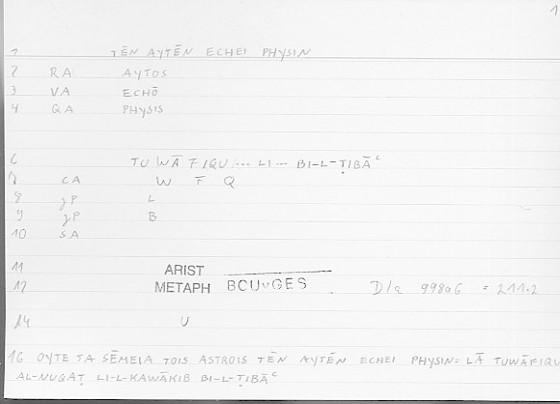 1
1 TĒN AYTĒN ECHEI PHYSIN
2 RA AYTOS
3 VA ECHŌ
4 QA PHYSIS
6 TUWĀFIQU ... LI ... BI-L-ṬIBĀʿ
7 CA W F Q
8 gP L
9 gP B
10 SA
11 ARIST
12 METAPH BOUYGES D/a 990a6 = 211.2
14 U
16 OYTE TA SĒMEIA TOIS ASTROIS TĒN AYTĒN ECHEI PHYSIN = LĀ TUWĀFIQU
AL-NUQAṬ LI-L-KAWĀKIB BI-L-ṬIBĀʿ